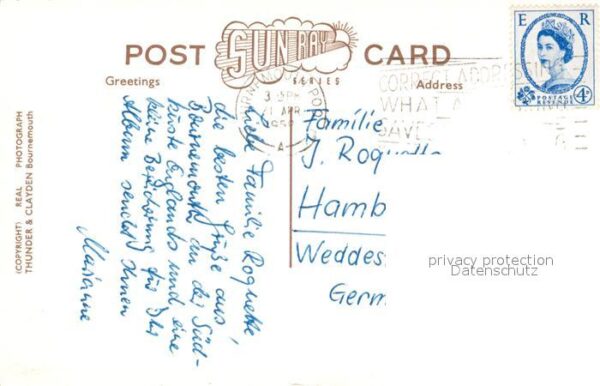 POST SUN RAY SERIES CARD
Greetings
Address
E R
POSTAGE
REVENUE
4D
3 PM
21 APR
195
A
CORRECT ADDRESSING
WHAT A
SAVES
Liebe Familie Roquette,
die besten Grüße aus
Bournemouth an der Süd-
küste Englands und eine
kleine Bereicherung für Ihr
Album sendet Ihnen
Marianne
Familie
J. Roquette
Hamb
Weddes
Germ
privacy protection
Datenschutz
(COPYRIGHT) REAL PHOTOGRAPH
THUNDER & CLAYDEN Bournemouth